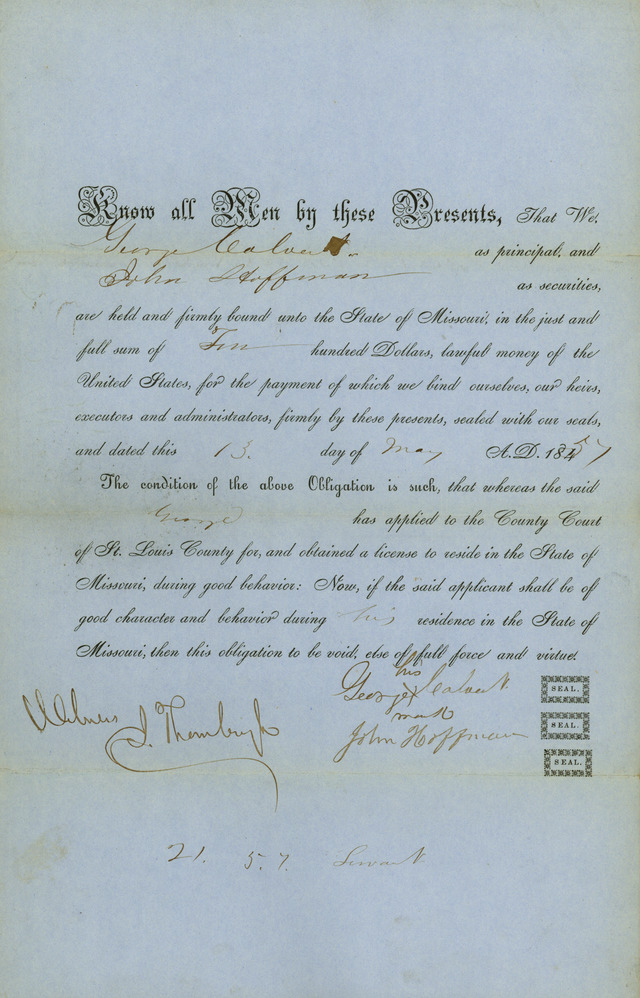 Know all Men by these Presents, That We,
George Calvert as principal, and
John Hoffman as securities,
are held and firmly bound unto the State of Missouri, in the just and
full sum of hundred Dollars, lawful money of the
United States, for the payment of which we bind ourselves, our heirs,
executors and administrators, firmly by these presents, sealed with our seals,
and dated this 13 day of May A. D. 1857
The condition of the above Obligation is such, that whereas the said
George has applied to the County Court
of St. Louis County for, and obtained a license to reside in the State of
Missouri, during good behavior: Now, if the said applicant shall be of
good character and behavior during his residence in the State of
Missouri, then this obligation to be void, else of full force and virtue.
his
George X Calvert SEAL.
mark
Witness J. Thornburgh John Hoffman SEAL.
SEAL.
21. 5.7. Servant